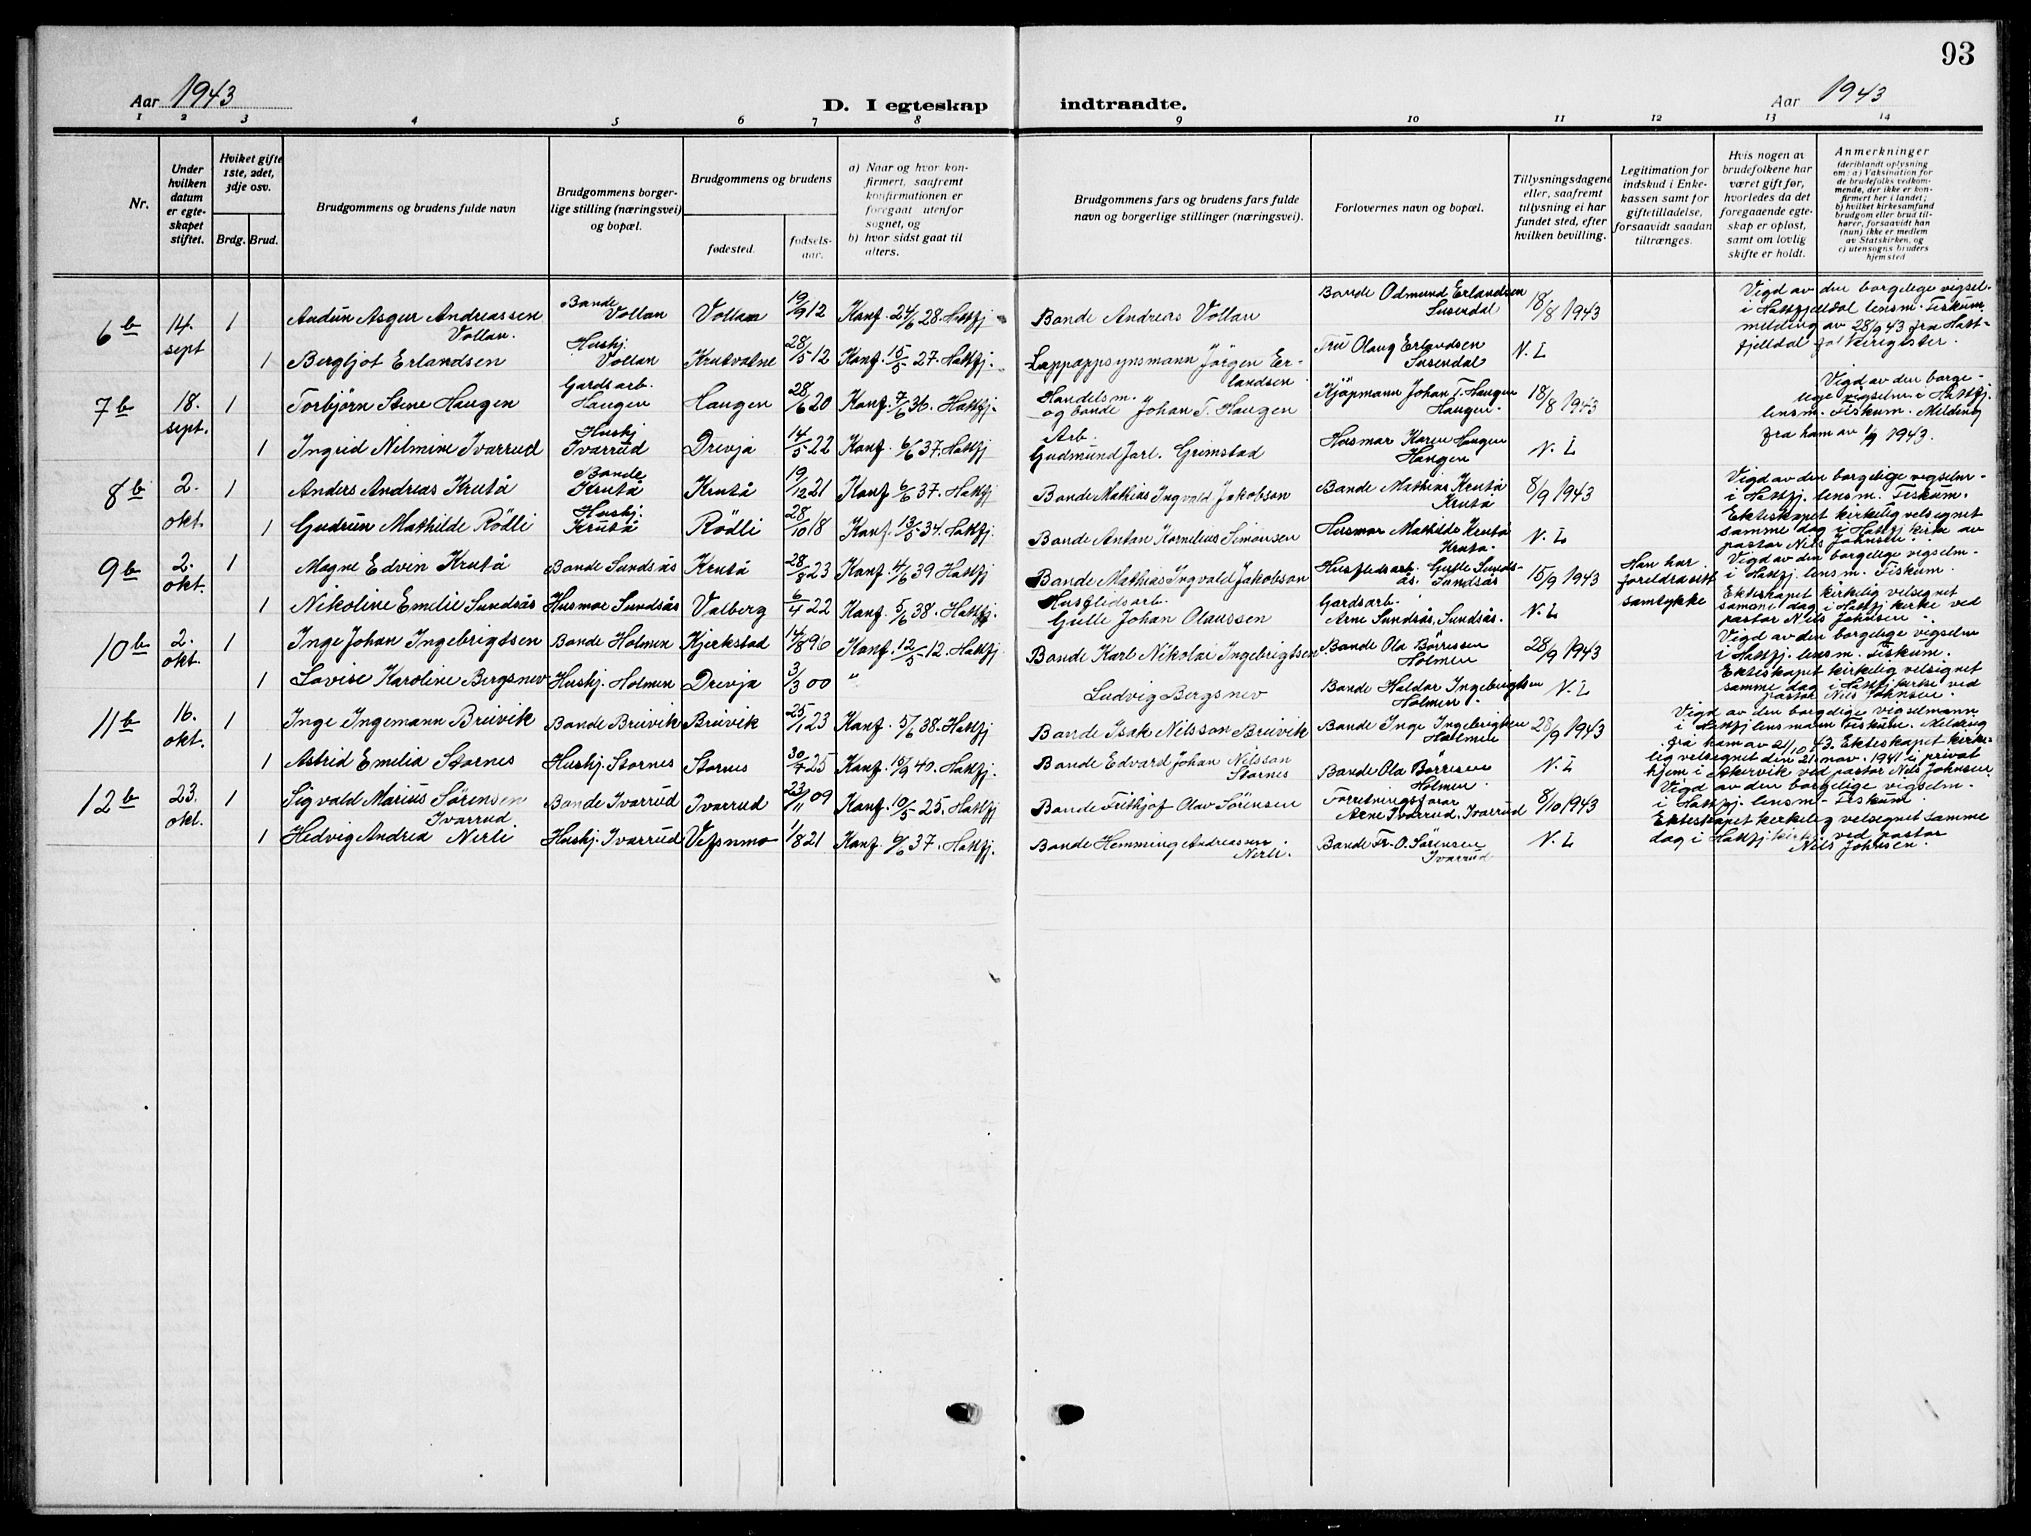 93
Aar 1943
D. I egteskap
indtraadte.
Aar 1943
1 2 3 4 5 6 7 8 9 10 11 12 13 14
Nr.
Under hvilken datum er egteskapet stiftet.
Hviket gifte 1ste, 2det, 3dje osv.
Brdg. Brud.
Brudgommens og brudens fulde navn
Brudgommens borgerlige stilling (næringsvei) og bopæl.
Brudgommens og brudens
fødested.
fødselsaar.
a) Naar og hvor konfirmert, saafremt konfirmationen er foregaat utenfor sognet, og
b) hvor sidst gaat til alters.
Brudgommens fars og brudens fars fulde navn og borgerlige stillinger (næringsvei).
Forlovernes navn og bopæl.
Tillysningsdagene eller, saafremt tillysning ei har fundet sted, efter hvilken bevilling.
Legitimation for indskud i Enkekassen samt for giftetilladelse, forsaavidt saadan tiltrænges.
Hvis nogen av brudefolkene har været gift før, hvorledes da det foregaaende egteskap er opløst, samt om lovlig skifte er holdt.
Anmerkninger (deriblandt oplysning om: a) Vaksination for de brudefolks vedkommende, der ikke er konfirmert her i landet; b) hvilket kirkesamfund brudgom eller brud tilhører, forsaavidt han (hun) ikke er medlem av Statskirken, og c) utensogns bruders hjemsted
6 b 14. sept 1 Audun Asgur Andreassen Vollan. Bonde Vollan Vollan 19/9 12 Konf. 24/6 28. Hattfj. Bonde Andreas Vollan Bonde Odmund Erlandsen Susendal 18/8 1943
Vigd av den borgelige vigsel-
i Hattfjelldal lensm. Fiskum.
melding av 28/9 43 fra Hatt-
fjelldal
1 Bergljot Erlandsen Hushj. Vollan Krukvatne 28/5 12 Konf. 15/5 27. Hattfj. Lappoppsynsmann Jörgen Erlandsen Fru Olaug Erlandsen Susendal N. L
7 b 18. sept. 1 Torbjörn Stene Haugen Gardsarb. Haugen Haugen 28/6 20 Konf. 7/6 36. Hattfj. Handelsm. og bonde Johan T. Haugen Kjöpmann Johan T. Haugen Haugen. 18/8 1943
Vigd av den borge-
lige vigselm. i Hattfj.
lensm. Fiskum. Melding
fra ham av 1/9 1943.
1 Ingrid Nilmine Ivarrud Hushj Ivarrud Drevja 14/5 22 Konf. 6/6 37. Hattfj Arb. Gudmund Jarl. Grimstad Husmor Karen Haugen Haugen N. L
8 b 2. okt. 1 Anders Andreas Krutå Bonde Krutå Krutå 19/12 21 Konf. 6/6 37. Hattfj Bonde Mathias Ingvald Jakobson Bonde Mathias Krutå Krutå 8/9 1943
Vigd av den borgelige vigselm-
i Hattfj. lensm. Fiskum.
Ekteskapet kirkelig velsignet
samme dag i Hattfj kirke av
pastor Nils Johnsen.
1 Gudrun Mathilde Rödli Hushj. Krutå Rödli 28/10 18 Konf. 13/5 34. Hattfj. Bonde Antan Kornelius Simonsen Husmor Mathilde Krutå Krutå. N. L
9 b 2. okt. 1 Magne Edvin Krutå Bonde Sundsås Krutå 28/3 23 Konf. 4/6 39 Hattfj Bonde Mathias Ingvald Jakobson Husflidsarb. Gulle Sundsås. Sundsås 15/9 1943 Han har foreldras samtykke
Vigd av den borgelige vigselm.
i Hattfj. lensm. Fiskum.
Ekteskapet kirkelig velsignet
samme dag i Hattfj kirke ved
pastor Nils Johnsen.
1 Nikoline Emilie Sundsås Husmor Sundsås Valberg 6/4 22 Konf. 5/6 38. Hattfj. Husflidsarb. Gulle Johan Olaussen Gardsarb. Arne Sundsås, Sundsås. N. L
10 b 2. okt. 1 Inge Johan Ingebrigtsen Bonde Holmen Kjerkstad 14/8 96 Konf. 12/5 12. Hattfj Bonde Karl Nikolai Ingebrigtsen Bonde Ola Börresen Holmen 28/9 1943
Vigd av den borgelige vigselm
i Hattfj. lensm. Fiskum.
Ekteskapet kirkelig velsignet
samme dag i Hattfj kirke ved
pastor Nils Johnsen.
1 Lovise Karoline Bergsnev Hushj. Holmen Drevja 3/3 00 " Ludvig Bergsnev Bonde Haldor Ingebrigtsen Holmen. N. L
11 b 16. okt. 1 Inge Ingemann Breivik Bonde Breivik Breivik 25/1 23 Konf. 5/6 38. Hattfj Bonde Isak Nilsson Breivik Bonde Inge Ingebrigtsen Holmen 28/9 1943
Vigd av den borgelige vigselmann
i Hattfj lensmann Fiskum. Melding
fra ham av 21/10 43. Ekteskapet kirke-
lig velsignet den 21. nov. 1941 i privat
hjem i Skervik ved pastor Nils Johnsen.
1 Astrid Emilia Stornes Hushj. Stornes Stornes 30/7 25 Konf. 15/9 40. Hattfj. Bonde Edvard Johan Nilsson Stornes Bonde Ola Börresen Holmen N. L
12 b 23. okt. 1 Sigvald Marius Sörensen Ivarrud Bonde Ivarrud Ivarrud 23/11 09 Konf. 10/5 25. Hattfj Bonde Frithjof Olav Sörensen Forretningsförer Arne Ivarrud, Ivarrud 8/10 1943
Vigd av den borgelige vigselm.
i Hattfj. lensm. Fiskum.
Ekteskapet kirkelig velsignet samme
dag i Hattfj. kirke ved pastor
Nils Johnsen.
1 Hedvig Andrea Nerli Hushj. Ivarrud Vefsnmo 1/8 21 Konf. 6/6 37. Hattfj. Bonde Hemming Andreassen Nerli. Bonde Fr. O. Sörensen Ivarrud N. L